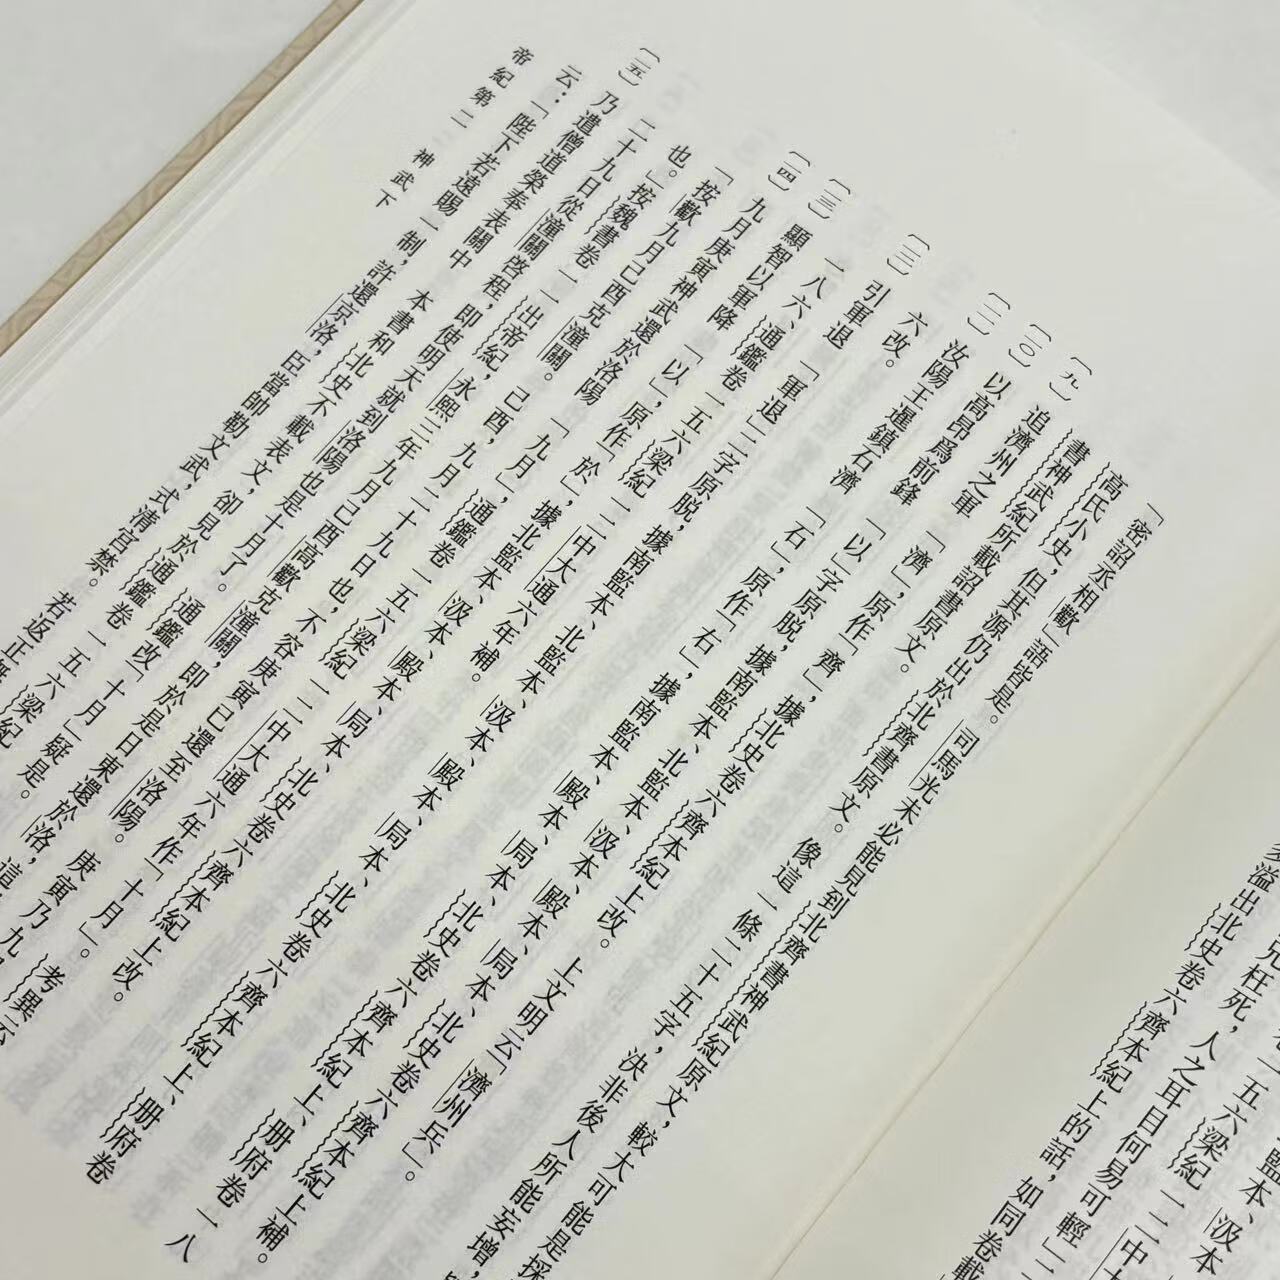 監本、汲本
卷一五六梁紀一二中大
兄枉死，人之耳目何易可輕」二
多溢出北史卷六齊本紀上的話，如同卷載
「密詔丞相歡」語皆是。司馬光未必能見到北齊書神武紀原文，較大可能是採
高氏小史，但其源仍出於北齊書原文。像這一條二十五字，決非後人所能妄增，
書神武紀所載詔書原文。
〔九〕追濟州之軍　「濟」，原作「齊」，據北史卷六齊本紀上改。上文明云「濟州兵」。
〔一〇〕以高昂爲前鋒　「以」字原脱，據南監本、北監本、汲本、殿本、局本、北史卷六齊本紀上補。
〔一一〕汝陽王暹鎮石濟　「石」，原作「右」，據南監本、北監本、汲本、殿本、局本、北史卷六齊本紀上、册府卷一八
六改。
〔一二〕引軍退　「軍退」二字原脱，據南監本、北監本、汲本、殿本、局本、北史卷六齊本紀上、册府卷
一八六、通鑑卷一五六梁紀一二中大通六年補。
〔一三〕顯智以軍降　「以」，原作「於」，據北監本、汲本、殿本、局本、北史卷六齊本紀上改。
〔一四〕九月庚寅神武還於洛陽　「九月」，通鑑卷一五六梁紀一二中大通六年作「十月」。考異云
「按歡九月己酉克潼關。己酉，九月二十九日也，不容庚寅已還至洛陽。庚寅乃
也。」按魏書卷一一出帝紀，永熙三年九月己酉高歡克潼關，即於是日東還於洛，這九
二十九日從潼關啓程，即使明天就到洛陽也是十月了。通鑑改「十月」疑是。
〔一五〕乃遣僧道榮奉表關中　本書和北史不載表文，卻見於通鑑卷一五六梁紀
云：「陛下若遠賜一制，許還京洛，臣當帥勒文武，式清宮禁。若返正
帝紀第二　神武下